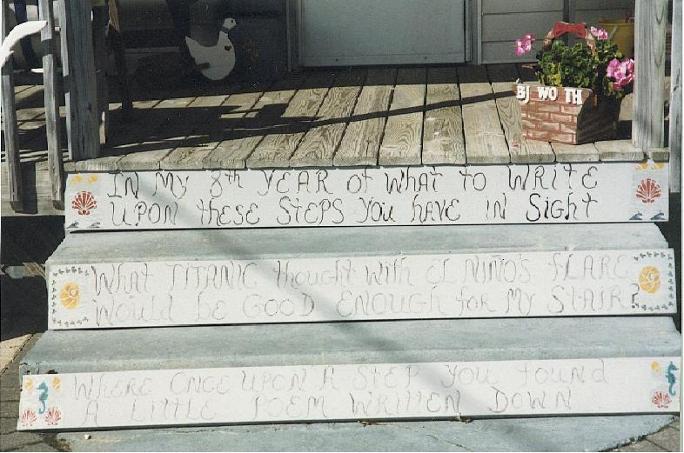 BJ WOTH
In My 8th YEAR of What to WRITE
UPON these STEPS YOU have in Sight
What TITANIC thought with El NINO'S FLARE
Would be GOOD ENOUGH for My STAIR?
WHERE ONCE UPON A STEP YOU found
A LITTLE POEM WRITTEN DOWN